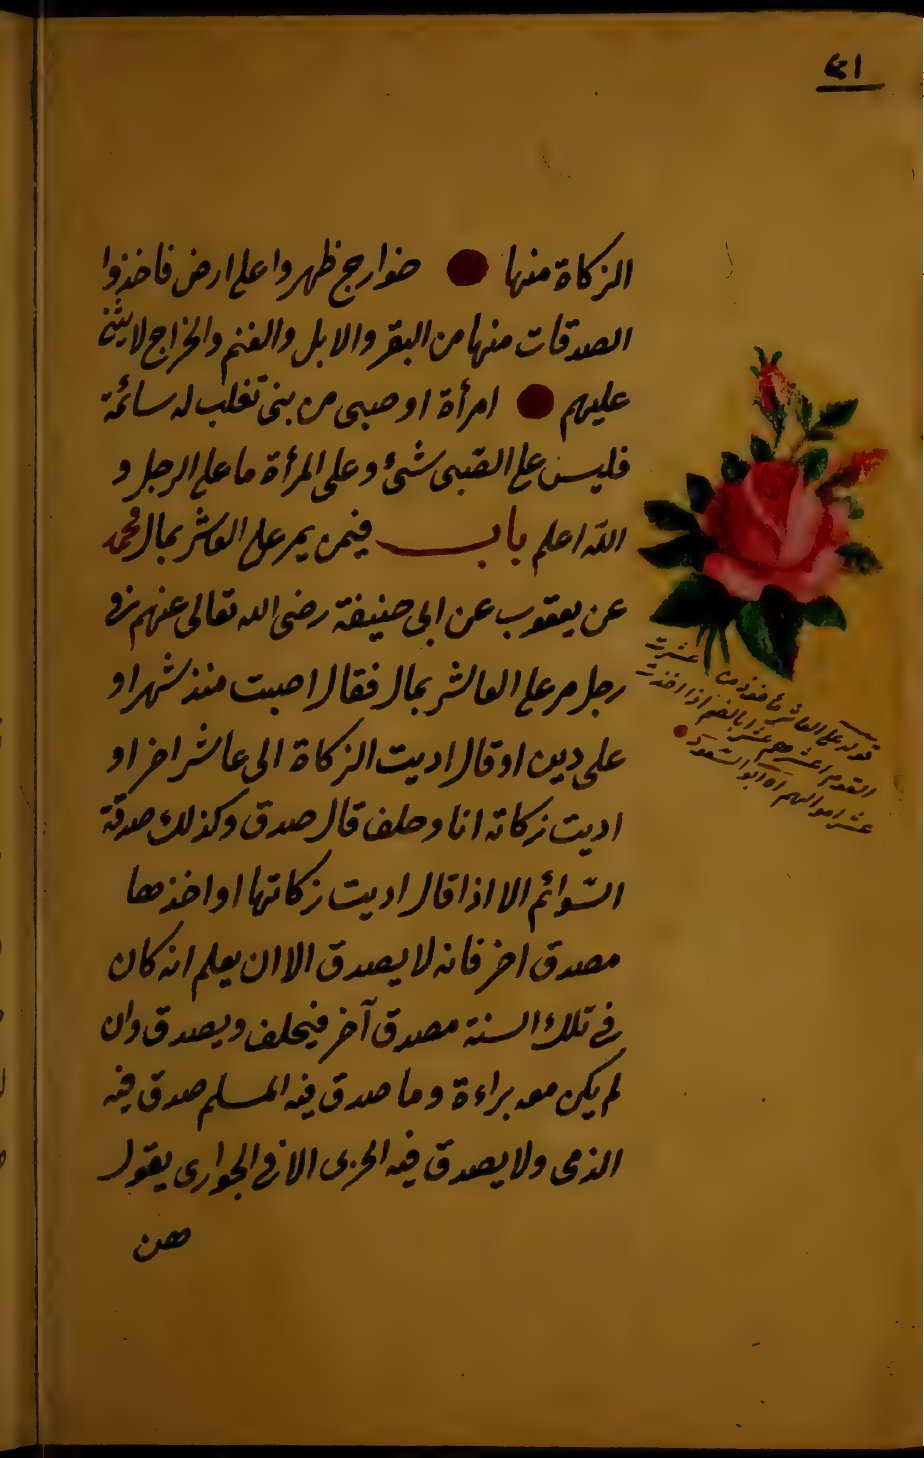 ٤١
الزكاة منها ● خوارج ظهروا على ارض فاخذوا
الصدقات منها من البقر والابل والغنم والخراج لا يثنى
عليهم ● امرأة او صبى من بنى تغلب له سائمة
فليس على الصّبى شئ وعلى المرأة ما على الرجل و
الله اعلم باب فيمن يمر على العاشر بمال محمد
عن يعقوب عن ابى حنيفة رضى الله تعالى عنهم فى
رجل مر على العاشر بمال فقال اصبت منذ شهر او
على دين او قال اديت الزكاة الى عاشر اخر او
اديت زكاته انا وحلف قال صدق وكذلك صدقة
السّوائم الا اذا قال اديت زكاتها او اخذها
مصدق اخر فانه لا يصدق الا ان يعلم انه كان
فى تلك السنة مصدق آخر فيحلف ويصدق وان
لم يكن معه براءة وما صدق فيه المسلم صدق فيه
الذمى ولا يصدق فيه الحربى الا فى الجوارى يقول
هن
قوله على العاشر مأخوذ من عشرت
القوم اعشرهم عشرا بالضم اذا اخذت
عشر اموالهم اه ابو السعود